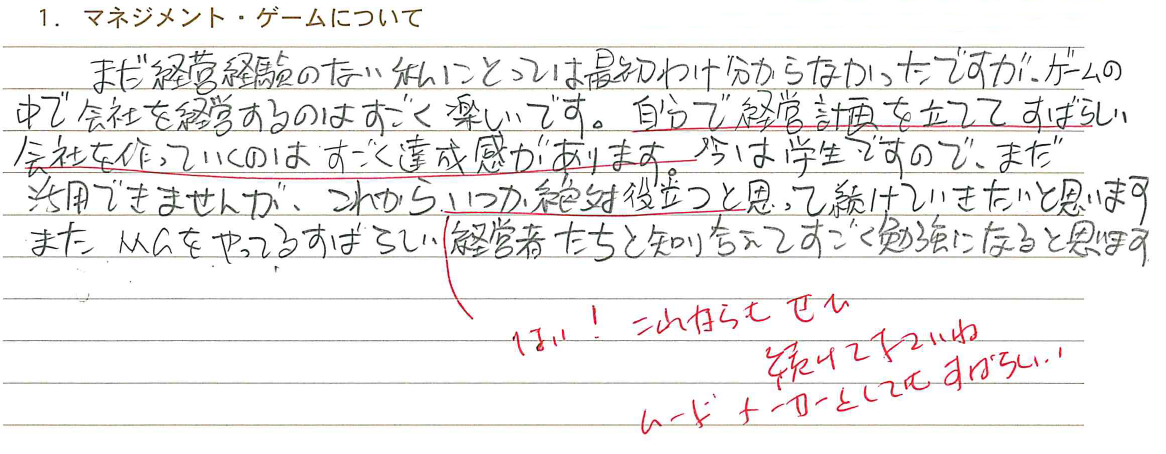 1. マネジメント・ゲームについて
まだ経営経験のない私にとっては最初わけ分からなかったですが、ゲームの
中で会社を経営するのはすごく楽しいです。自分で経営計画を立ててすばらしい
会社を作っていくのはすごく達成感があります。今は学生ですので、まだ
活用できませんが、これからいつか絶対役立つと思って続けていきたいと思います
また MGをやってるすばらしい経営者たちと知り合えてすごく勉強になると思います
はい！これからもぜひ
続けて下さいね
ムードメーカーとしてもすばらしい！